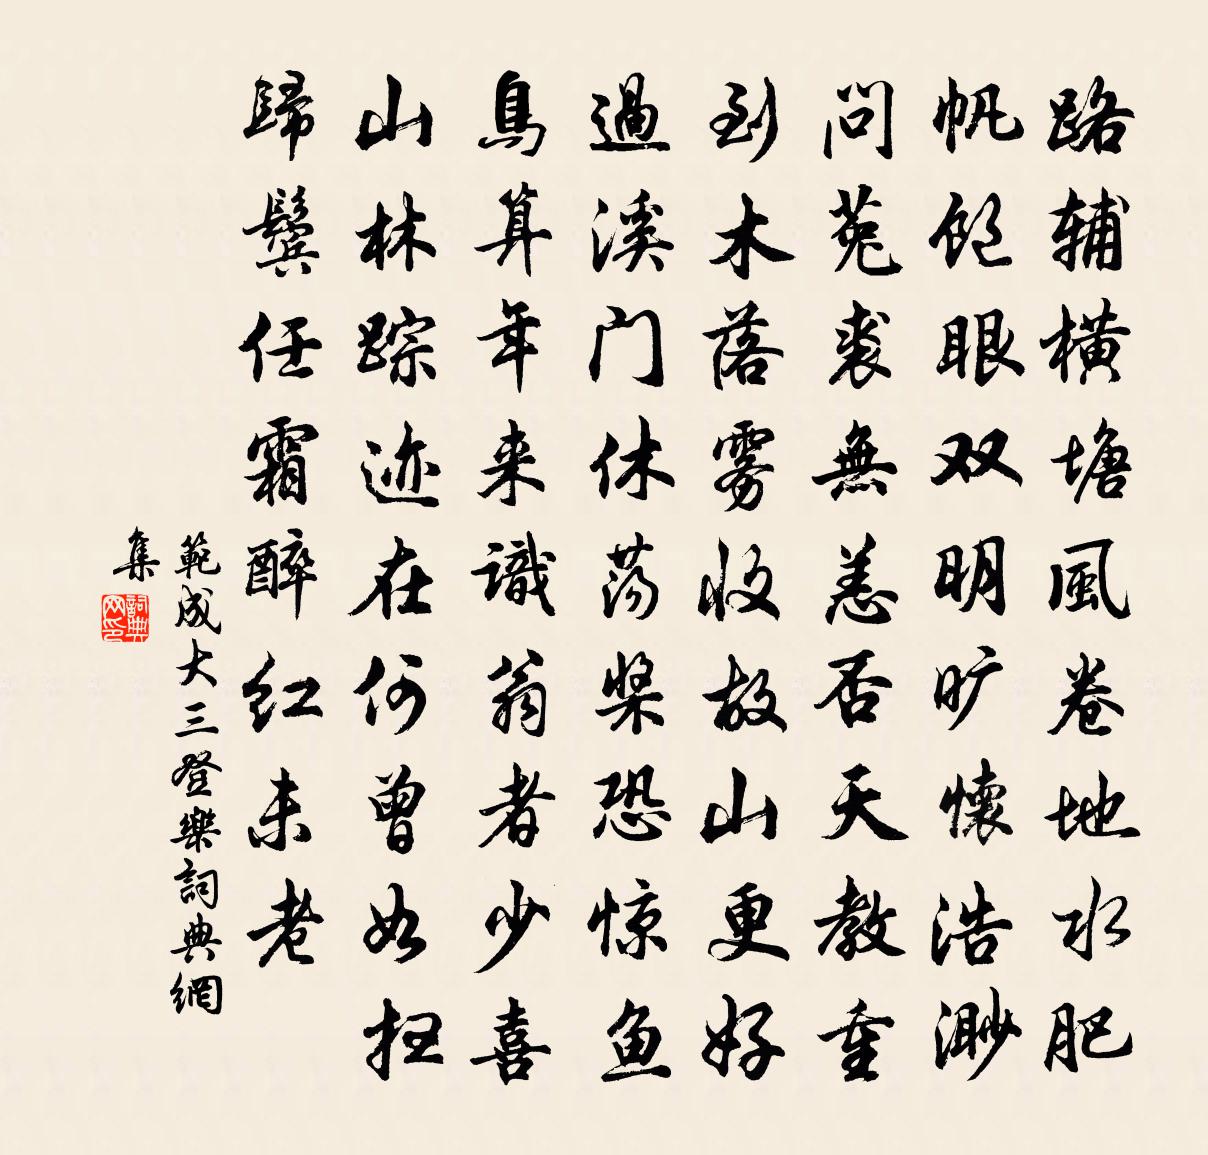 路辅横塘風卷地水肥
帆饱眼双明旷懷浩渺
問菟裘無恙否天教重
到木落雾收故山更好
過溪门休荡桨恐惊鱼
鳥算年来識翁者少喜
山林踪迹在何曾如扫
歸鬓任霜醉红未老
範成大三登樂詞典網
集
詞典
网印